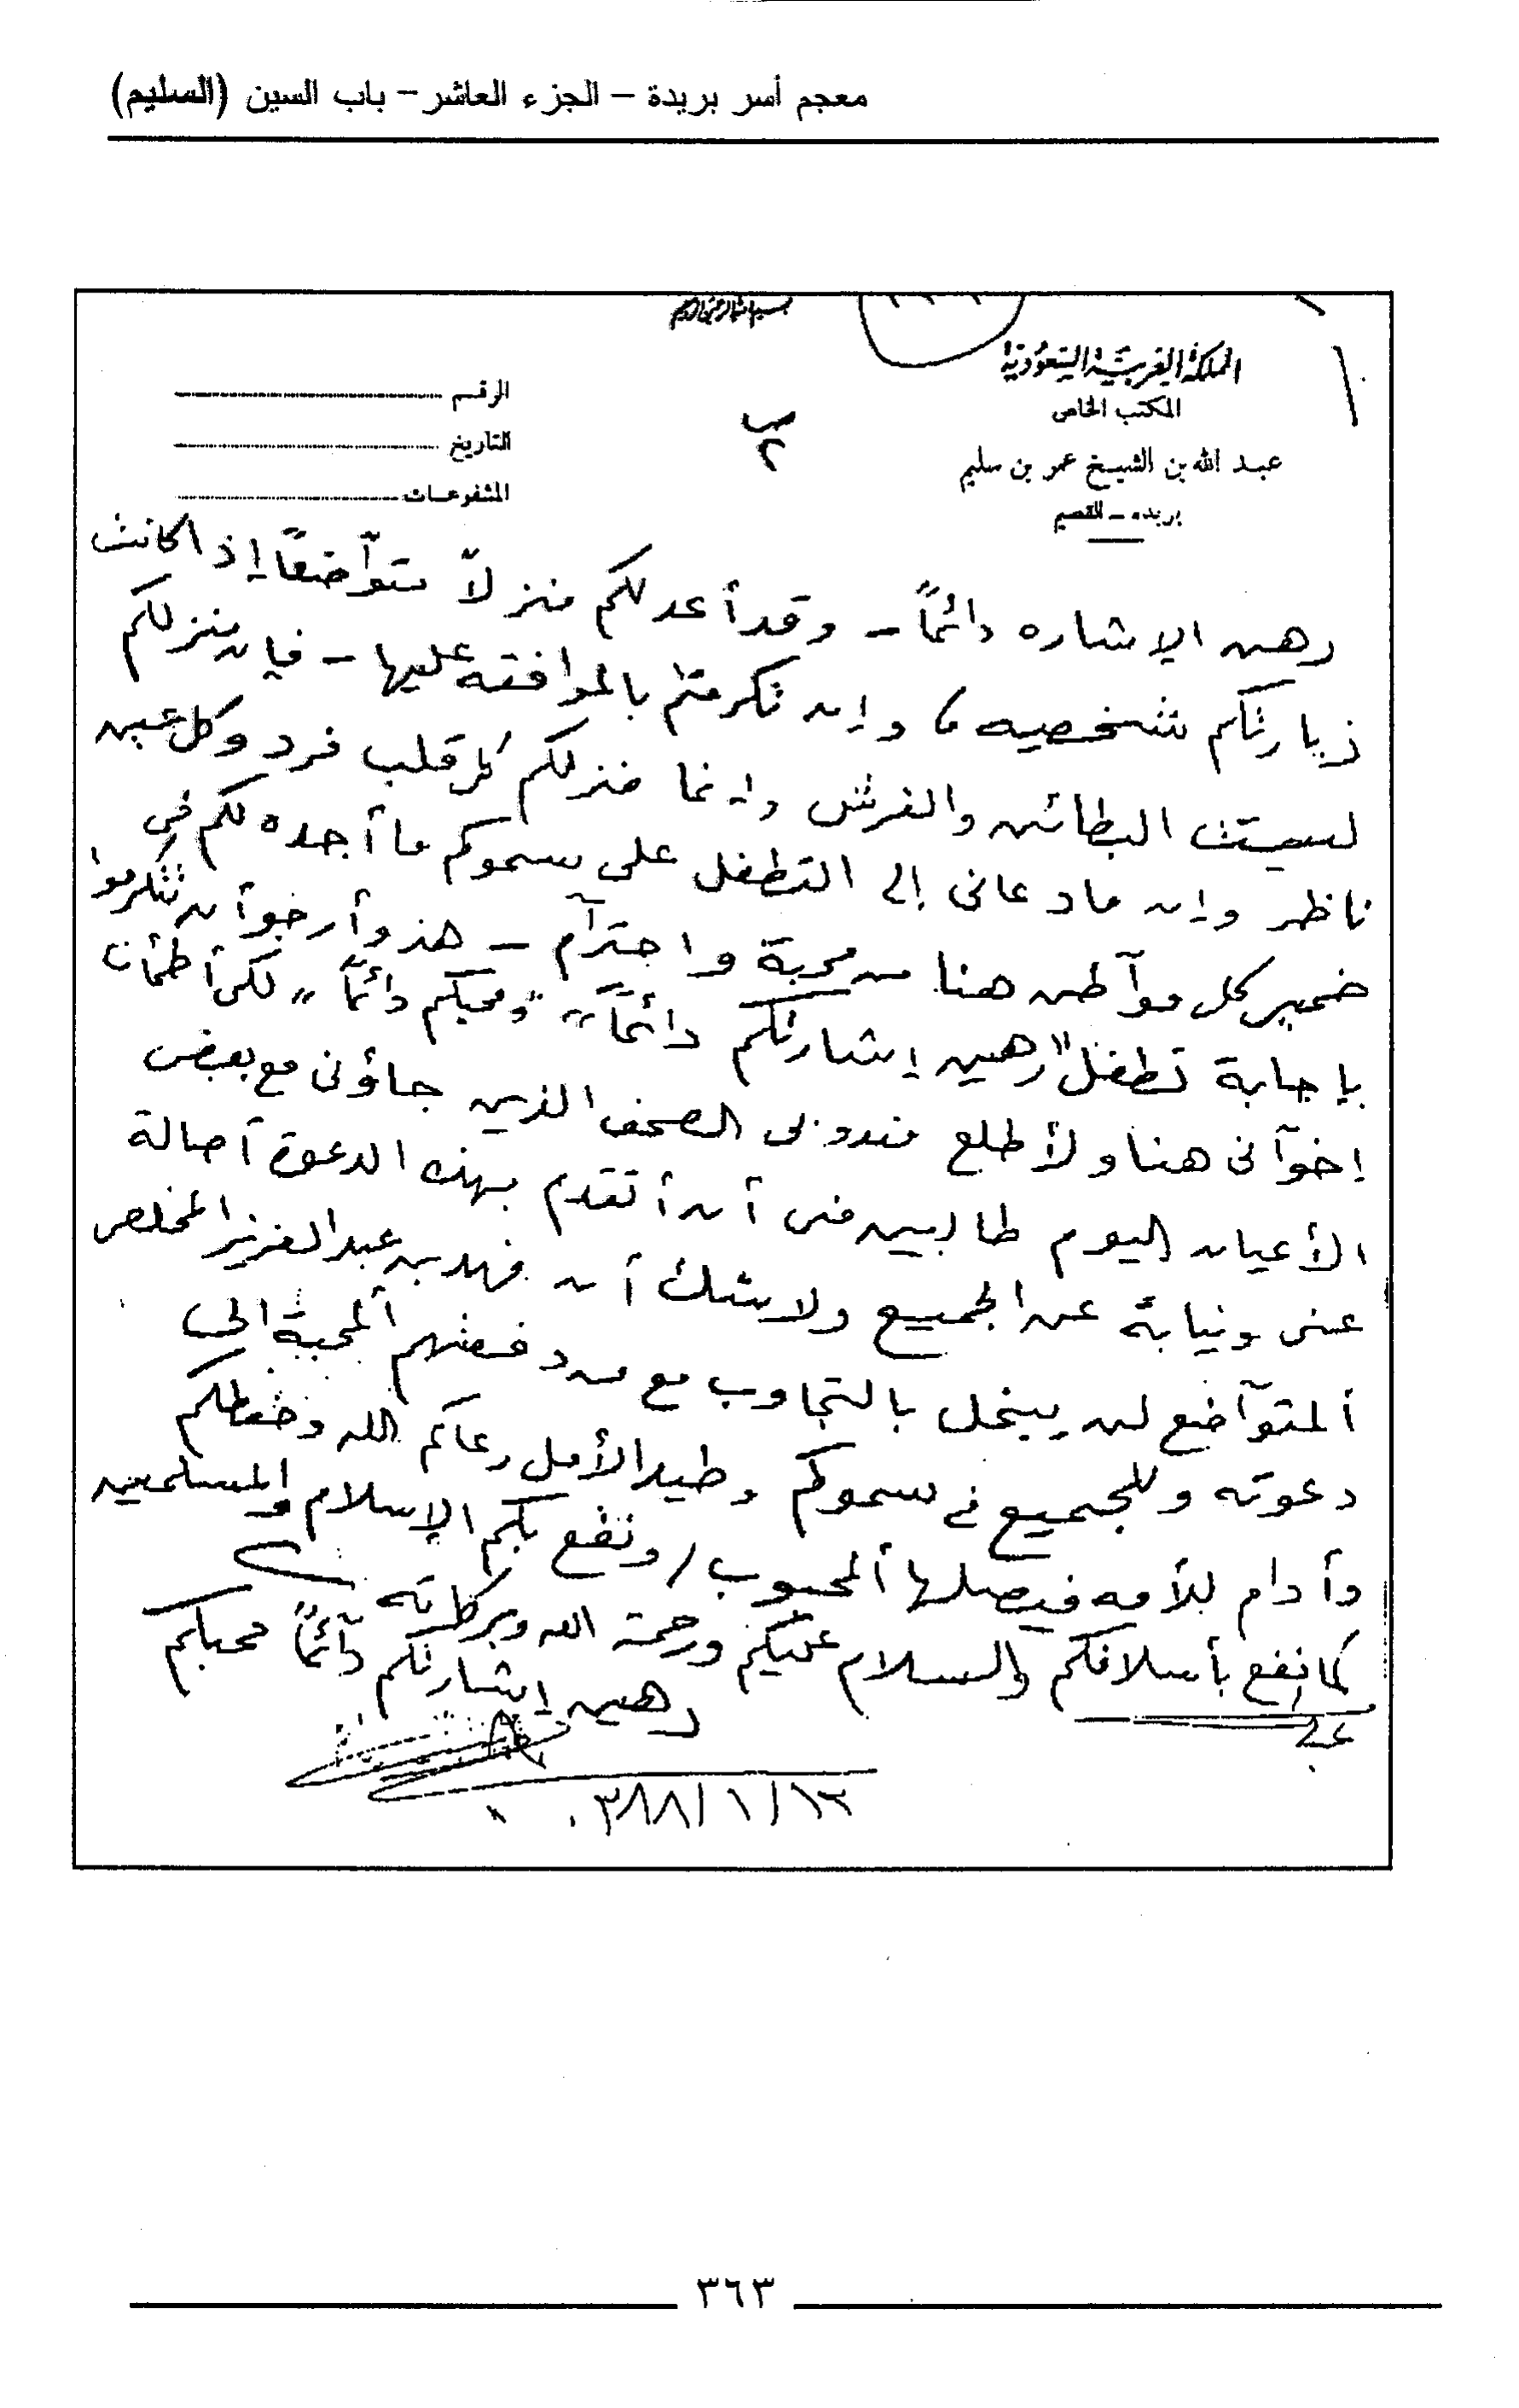 معجم أسر بريدة – الجزء العاشر – باب السين (السليم)
بسم الله الرحمن الرحيم
المملكة العربية السعودية
المكتب الخاص
عبد الله بن الشيخ عمر بن سليم
بريده – القصيم
الرقم
التاريخ
المشفوعات
ص ٢
رهن الإشاره دائماً – وقد أعد لكم منزلاً متوآضعاً إذا كانت
زيارتكم شخصيه، وإن تكرمتم بالموافقه عليها – فإن منزلكم
ليست البطائن والفرش وإنما منزلكم كل قلب فرد وكل عين
ناظر وإن مادعانى إلى التطفل على سموكم ما أجده لكم في
ضمير كل موآطن هنا من محبة واحترآم – هذ وأرجوا أن تتكرموا
بإجابة تطفل "رهين إشارتكم دائماً" "ومحبكم دائماً" لكى أطمأن
إخوآنى هنا ولأطلع مندوبى الصحف الذين جاؤنى مع بعض
الأعيان اليوم طالبين منى أن أتقدم بهذه الدعوة أصالة
عنى ونيابة عن الجميع ولاشك أن فهد بن عبدالعزيز المخلص
ألمتوآضع لن يبخل بالتجاوب مع من دفعتهم ألمحبة الى
دعوته وللجميع في سموكم وطيد الأمل رعاكم الله وحفظكم
وأدام للأمه فيصلها ألمحبوب / ونفع بكم الإسلام والمسلمين
كما نفع بأسلافكم والسلام عليكم ورحمة الله وبركاته
رهين إشارتكم دآئماً محبكم
٣٨٨/١/١٢
٣٦٣